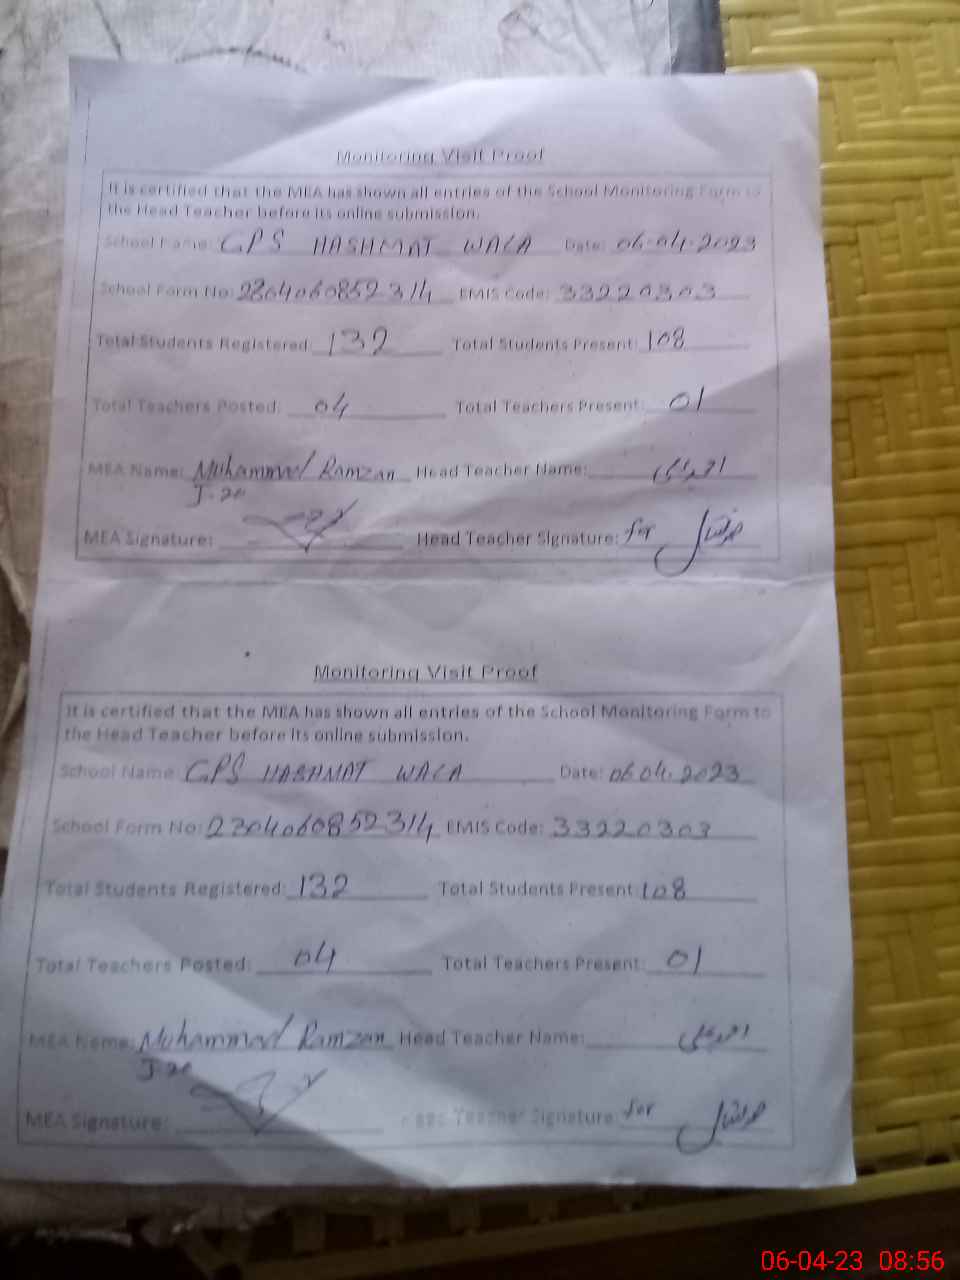 Monitoring Visit Proof
It is certified that the MEA has shown all entries of the School Monitoring Form to
the Head Teacher before its online submission.
School Name: GPS HASHMAT WALA Date: 06-04-2023
School Form No: 2304060852314 EMIS Code: 33220303
Total Students Registered: 132 Total Students Present: 108
Total Teachers Posted: 04 Total Teachers Present: 01
MEA Name: Muhammad Ramzan Head Teacher Name:
J-20
MEA Signature: Head Teacher Signature: for
Monitoring Visit Proof
It is certified that the MEA has shown all entries of the School Monitoring Form to
the Head Teacher before its online submission.
School Name: GPS HASHMAT WALA Date: 06.04.2023
School Form No: 2304060852314 EMIS Code: 33220303
Total Students Registered: 132 Total Students Present: 108
Total Teachers Posted: 04 Total Teachers Present: 01
MEA Name: Muhammad Ramzan Head Teacher Name:
J-20
MEA Signature: Head Teacher Signature: for
06-04-23 08:56